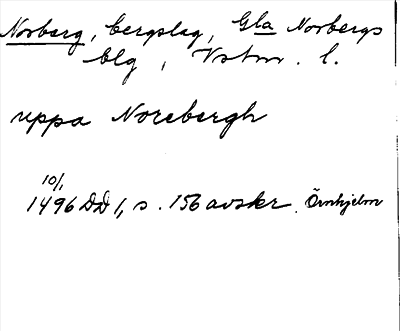 Norberg, bergslag, Gla Norbergs
blg, Vstm. l.
uppa Norebergh
10/1
1496 DD 1, s. 156 avskr. Örnhjelm